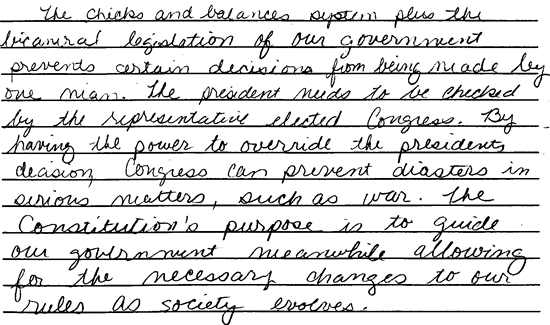 The chicks and balances system plus the
bicamiral legislation of our government
prevents certain decisions from being made by
one man. The president needs to be checked
by the representative elected Congress. By
having the power to override the presidents
decision, Congress can prevent diasters in
serious matters, such as war. The
Constitution's purpose is to guide
our government meanwhile allowing
for the necessary changes to our
rules as society evolves.